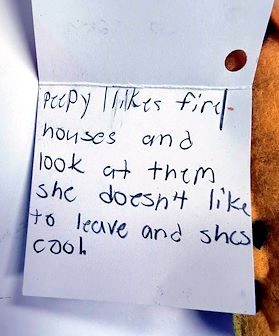 peepy llikes find
houses and
look at them
she doesn't like
to leave and shes
cool